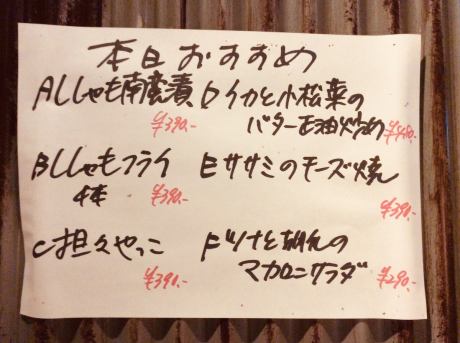 本日おすすめ
Aししゃも南蛮漬
¥390.-
Bししゃもフライ
4本
¥390.-
C担々やっこ
¥390.-
Dイカと小松菜の
バター醤油炒め ¥480.-
Eササミのチーズ焼
¥390.-
Fツナと明太の
マカロニサラダ
¥290.-